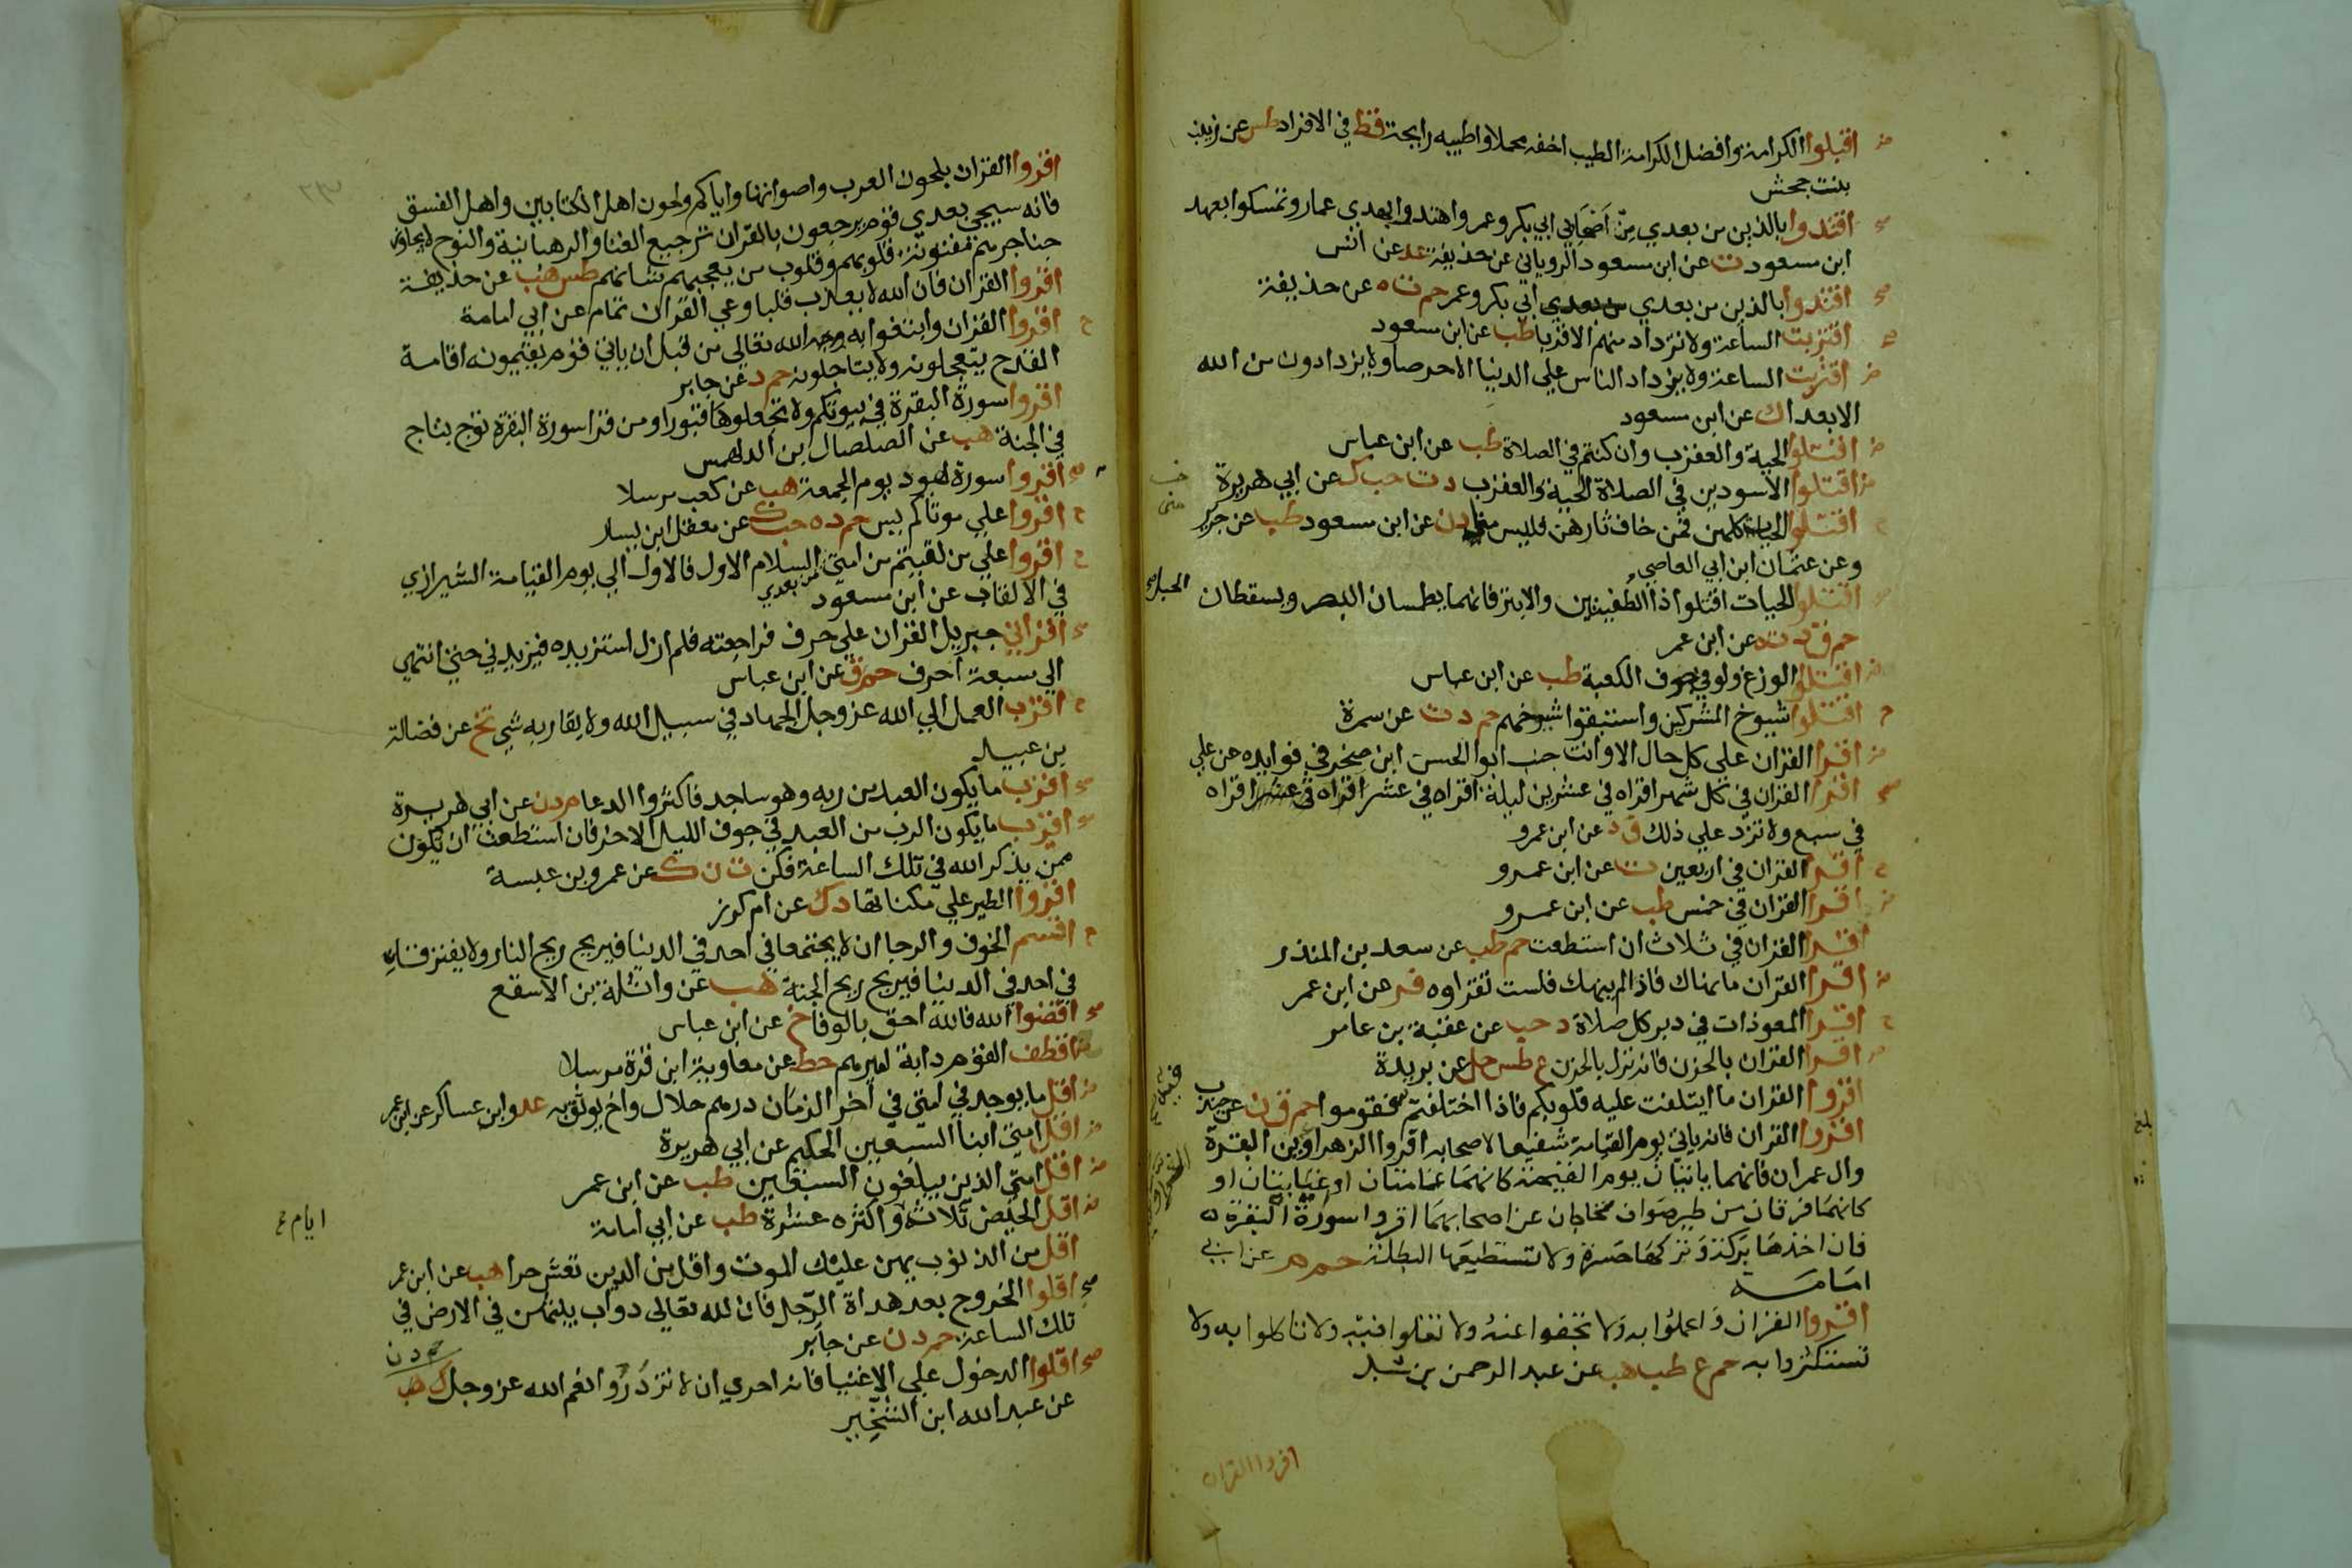 اقبلوا الكرامة وافضل الكرامة الطيب اخفه محملا واطيبه رايحة قط في الافراد طس عن زينب
بنت جحش
اقتدوا بالذين من بعدي من اصحابي ابي بكر وعمر واهتدوا بهدي عمار وتمسكوا بعهد
ابن مسعود ت عن ابن مسعود الروياني عن حذيفة عد عن انس
اقتدوا بالذين من بعدي ابي بكر وعمر حم ت ه عن حذيفة
اقتربت الساعة ولا تزداد منهم الا قربا طب عن ابن مسعود
اقتربت الساعة ولا يزداد الناس علي الدنيا الا حرصا ولا يزدادون من الله
الا بعدا ك عن ابن مسعود
اقتلوا الحية والعقرب وان كنتم في الصلاة طب عن ابن عباس
اقتلوا الاسودين في الصلاة الحية والعقرب د ت حب ك عن ابي هريرة
اقتلوا الحيات كلهن فمن خاف ثارهن فليس منا د ن عن ابن مسعود طب عن جرير
وعن عثمان ابن ابي العاصي
اقتلوا الحيات اقتلوا ذا الطفيتين والابتر فانهما يطمسان البصر ويسقطان الحبل
حم ق د ت ه عن ابن عمر
اقتلوا الوزغ ولو في جوف الكعبة طب عن ابن عباس
اقتلوا شيوخ المشركين واستبقوا شيوخهم حم د ت عن سمرة
اقرا القران على كل حال الا وانت جنب ابوا الحسن ابن صخر في فوايده عن علي
اقرا القران في كل شهر اقراه في عشرين ليلة اقراه في عشر اقراه في عشر اقراه
في سبع ولا تزد علي ذلك ق د عن ابن عمرو
اقرا القران في اربعين ت عن ابن عمرو
اقرا القران في خمس طب عن ابن عمرو
اقرا القران في ثلاث ان استطعت حم طب عن سعد بن المنذر
اقرا القران ما نهاك فاذا لم ينهك فلست تقراوه فر عن ابن عمر
اقرا المعوذات في دبر كل صلاة د حب عن عقبة بن عامر
اقرا القران بالحزن فانه نزل بالحزن ع طس حل عن بريدة
اقروا القران ما ايتلفت عليه قلوبكم فاذا اختلفتم فيه فقوموا حم ق ن عن جندب
اقروا القران فانه ياتي يوم القيامة شفيعا لاصحابه اقروا الزهراوين البقرة
وال عمران فانهما ياتيان يوم القيمة كانهما غمامتان او غيايتان او
كانهما فرقان من طير صواف يحاجان عن اصحابهما اقروا سورة البقرة
فان اخذها بركة وتركها حسرة ولا تستطيعها البطلة حم م عن ابي
امامة
اقروا القران واعملوا به ولا تجفوا عنه ولا تغلوا فيه ولا تاكلوا به ولا
تستكثروا به حم ع طب هب عن عبد الرحمن بن شبل
اقروا القران
اقروا القران بلحون العرب واصواتها واياكم ولحون اهل الكتابين واهل الفسق
فانه سيجي بعدي قوم يرجعون بالقران ترجيع الغنا والرهبانية والنوح لا يجاوز
حناجرهم مفتونة قلوبهم وقلوب من يعجبهم شانهم طس هب عن حذيفة
اقروا القران فان الله لا يعذب قلبا وعي القران تمام عن ابي امامة
اقروا القران وابتغوا به وجه الله تعالي من قبل ان ياتي قوم يقيمونه اقامة
القدح يتعجلونه ولا يتاجلونه حم د عن جابر
اقروا سورة البقرة في بيوتكم ولا تجعلوها قبورا ومن قرا سورة البقرة توج بتاج
في الجنة هب عن الصلصال بن الدلهمس
اقروا سورة هود يوم الجمعة هب عن كعب مرسلا
اقروا علي موتاكم يس حم د ه حب ك عن معقل ابن يسار
اقروا علي من لقيتم من امتي السلام الاول فالاول الي يوم القيامة الشيرازي
في الالقاب عن ابن مسعود من بعدي
اقراني جبريل القران علي حرف فراجعته فلم ازل استزيده فيزيدني حتي انتهي
الي سبعة احرف حم ق عن ابن عباس
اقرب العمل الي الله عز وجل الجهاد في سبيل الله ولا يقاربه شي تخ عن فضالة
بن عبيد
اقرب ما يكون العبد من ربه وهو ساجد فاكثروا الدعا م د ن عن ابي هريرة
اقرب ما يكون الرب من العبد في جوف الليل الاخر فان استطعت ان تكون
ممن يذكر الله في تلك الساعة فكن ت ن ك عن عمرو بن عبسة
اقروا الطير علي مكناتها د ك عن ام كرز
اقسم الخوف والرجا ان لا يجتمعا في احد في الدنيا فيريح ريح النار ولا يفترقا
في احد في الدنيا فيريح ريح الجنة هب عن واثلة بن الاسقع
اقضوا الله فالله احق بالوفا خ عن ابن عباس
اقطف القوم دابة اميرهم خط عن معاوية ابن قرة مرسلا
اقل ما يوجد في امتي في اخر الزمان درهم حلال واخ يوثق به عد وابن عساكر عن ابن عمر
اقل امتي ابنا السبعين الحكيم عن ابي هريرة
اقل امتي الذين يبلغون السبعين طب عن ابن عمر
اقل الحيض ثلاثة واكثره عشرة طب عن ابي امامة
ايام
اقل من الذنوب يهن عليك الموت واقل من الدين تعش حرا هب عن ابن عمر
اقلوا الخروج بعد هداة الرجل فان لله تعالي دواب يبثهن في الارض في
تلك الساعة حم د ن عن جابر
اقلوا الدخول علي الاغنيا فانه احري ان لا تزدروا نعم الله عز وجل ك هب
حم د ن
عن عبد الله ابن الشخير